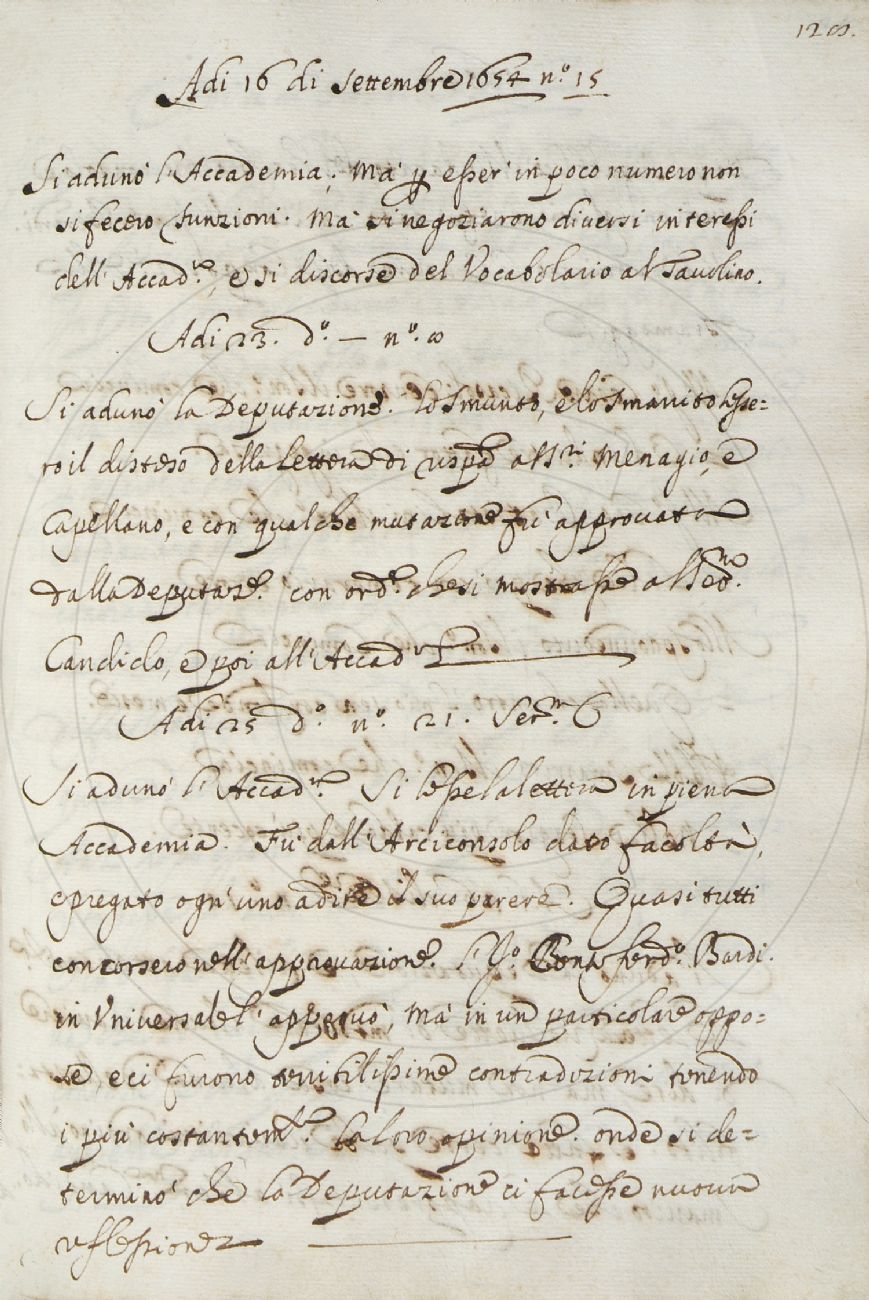 128.
Adi 16 di Settembre 1654 n.º 15
Si adunò l'Accademia; Mà p esser' in poco numero non
si fecero funzioni. Mà si negoziarono diversi interessi
dell'Accad.ª, e si discorse del Vocabolario al Tavolino.
Adi 23. d.º — n.º 8
Si adunò la Deputazione. Lo Smunto, e lo Smarrito lesse=
ro il disteso della lettera di risp.ª all SS.ri Menagio, e
Capellano, e con qualche mutazione fù approvata
dalla Deputaz.e con ord.e che si mostrasse al Ser.mo
Candido, e poi all'Accad.ª
Adi 25 d.º n.º 21. Ser.m
Si adunò l'Accad.ª Si lesse la lettera in piena
Accademia. Fù dall'Arciconsolo dato facoltà,
e pregato ogn'uno a dire il suo parere. Quasi tutti
concorsero nell'approvazione. Ferd.º Bardi.
in Universale l'approvò, Mà in un particolare oppo=
se, e ci furono contradizioni tenendo
i più costantem.te la loro opinione. onde si de=
terminò che la Deputazione ci facesse nuova
reflessione